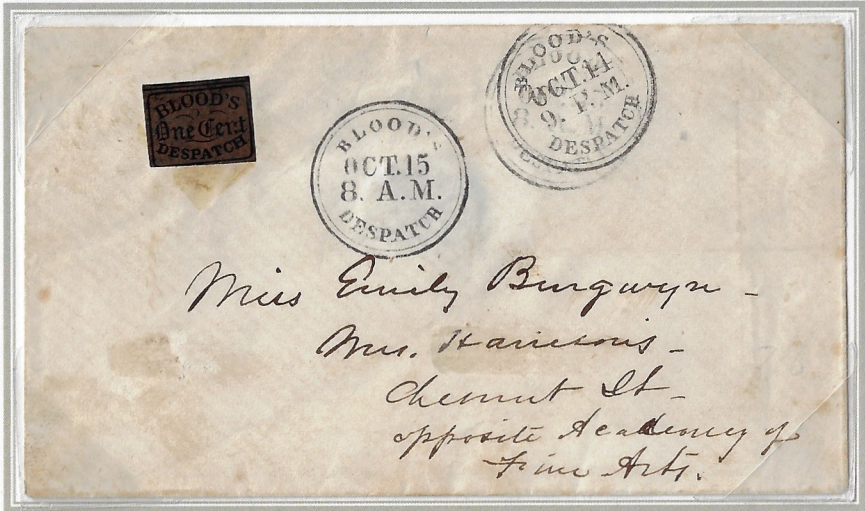 BLOOD'S
One Cent
DESPATCH
BLOOD'S
OCT. 15
8. A.M.
DESPATCH
BLOOD'S
OCT. 14
9. P.M.
DESPATCH
Miss Emily Burgwyn -
Mrs. Harrison's -
Chesnut St -
opposite Academy of
Fine Arts.